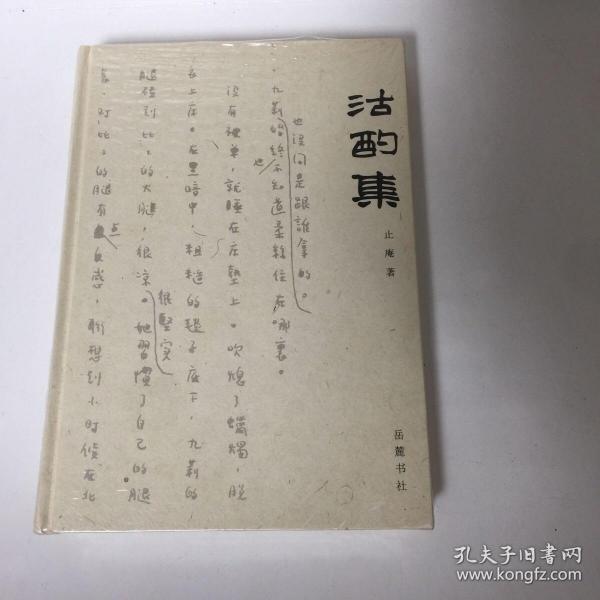 沽酌集
止庵 著
岳麓书社
也没问是跟誰拿的。
，九莉始終不知道柔絲住在哪裏。
也
没有被單，就睡在床墊上。吹熄了蠟燭，脱
衣上床。在黑暗中，粗糙的毯子底下，九莉的
很堅实
腿碰到比比的大腿，很凉。她習慣了自己的腿
点
对比比的腿有反感，聯想到小时候在北
孔夫子旧书网
www.kongfz.com